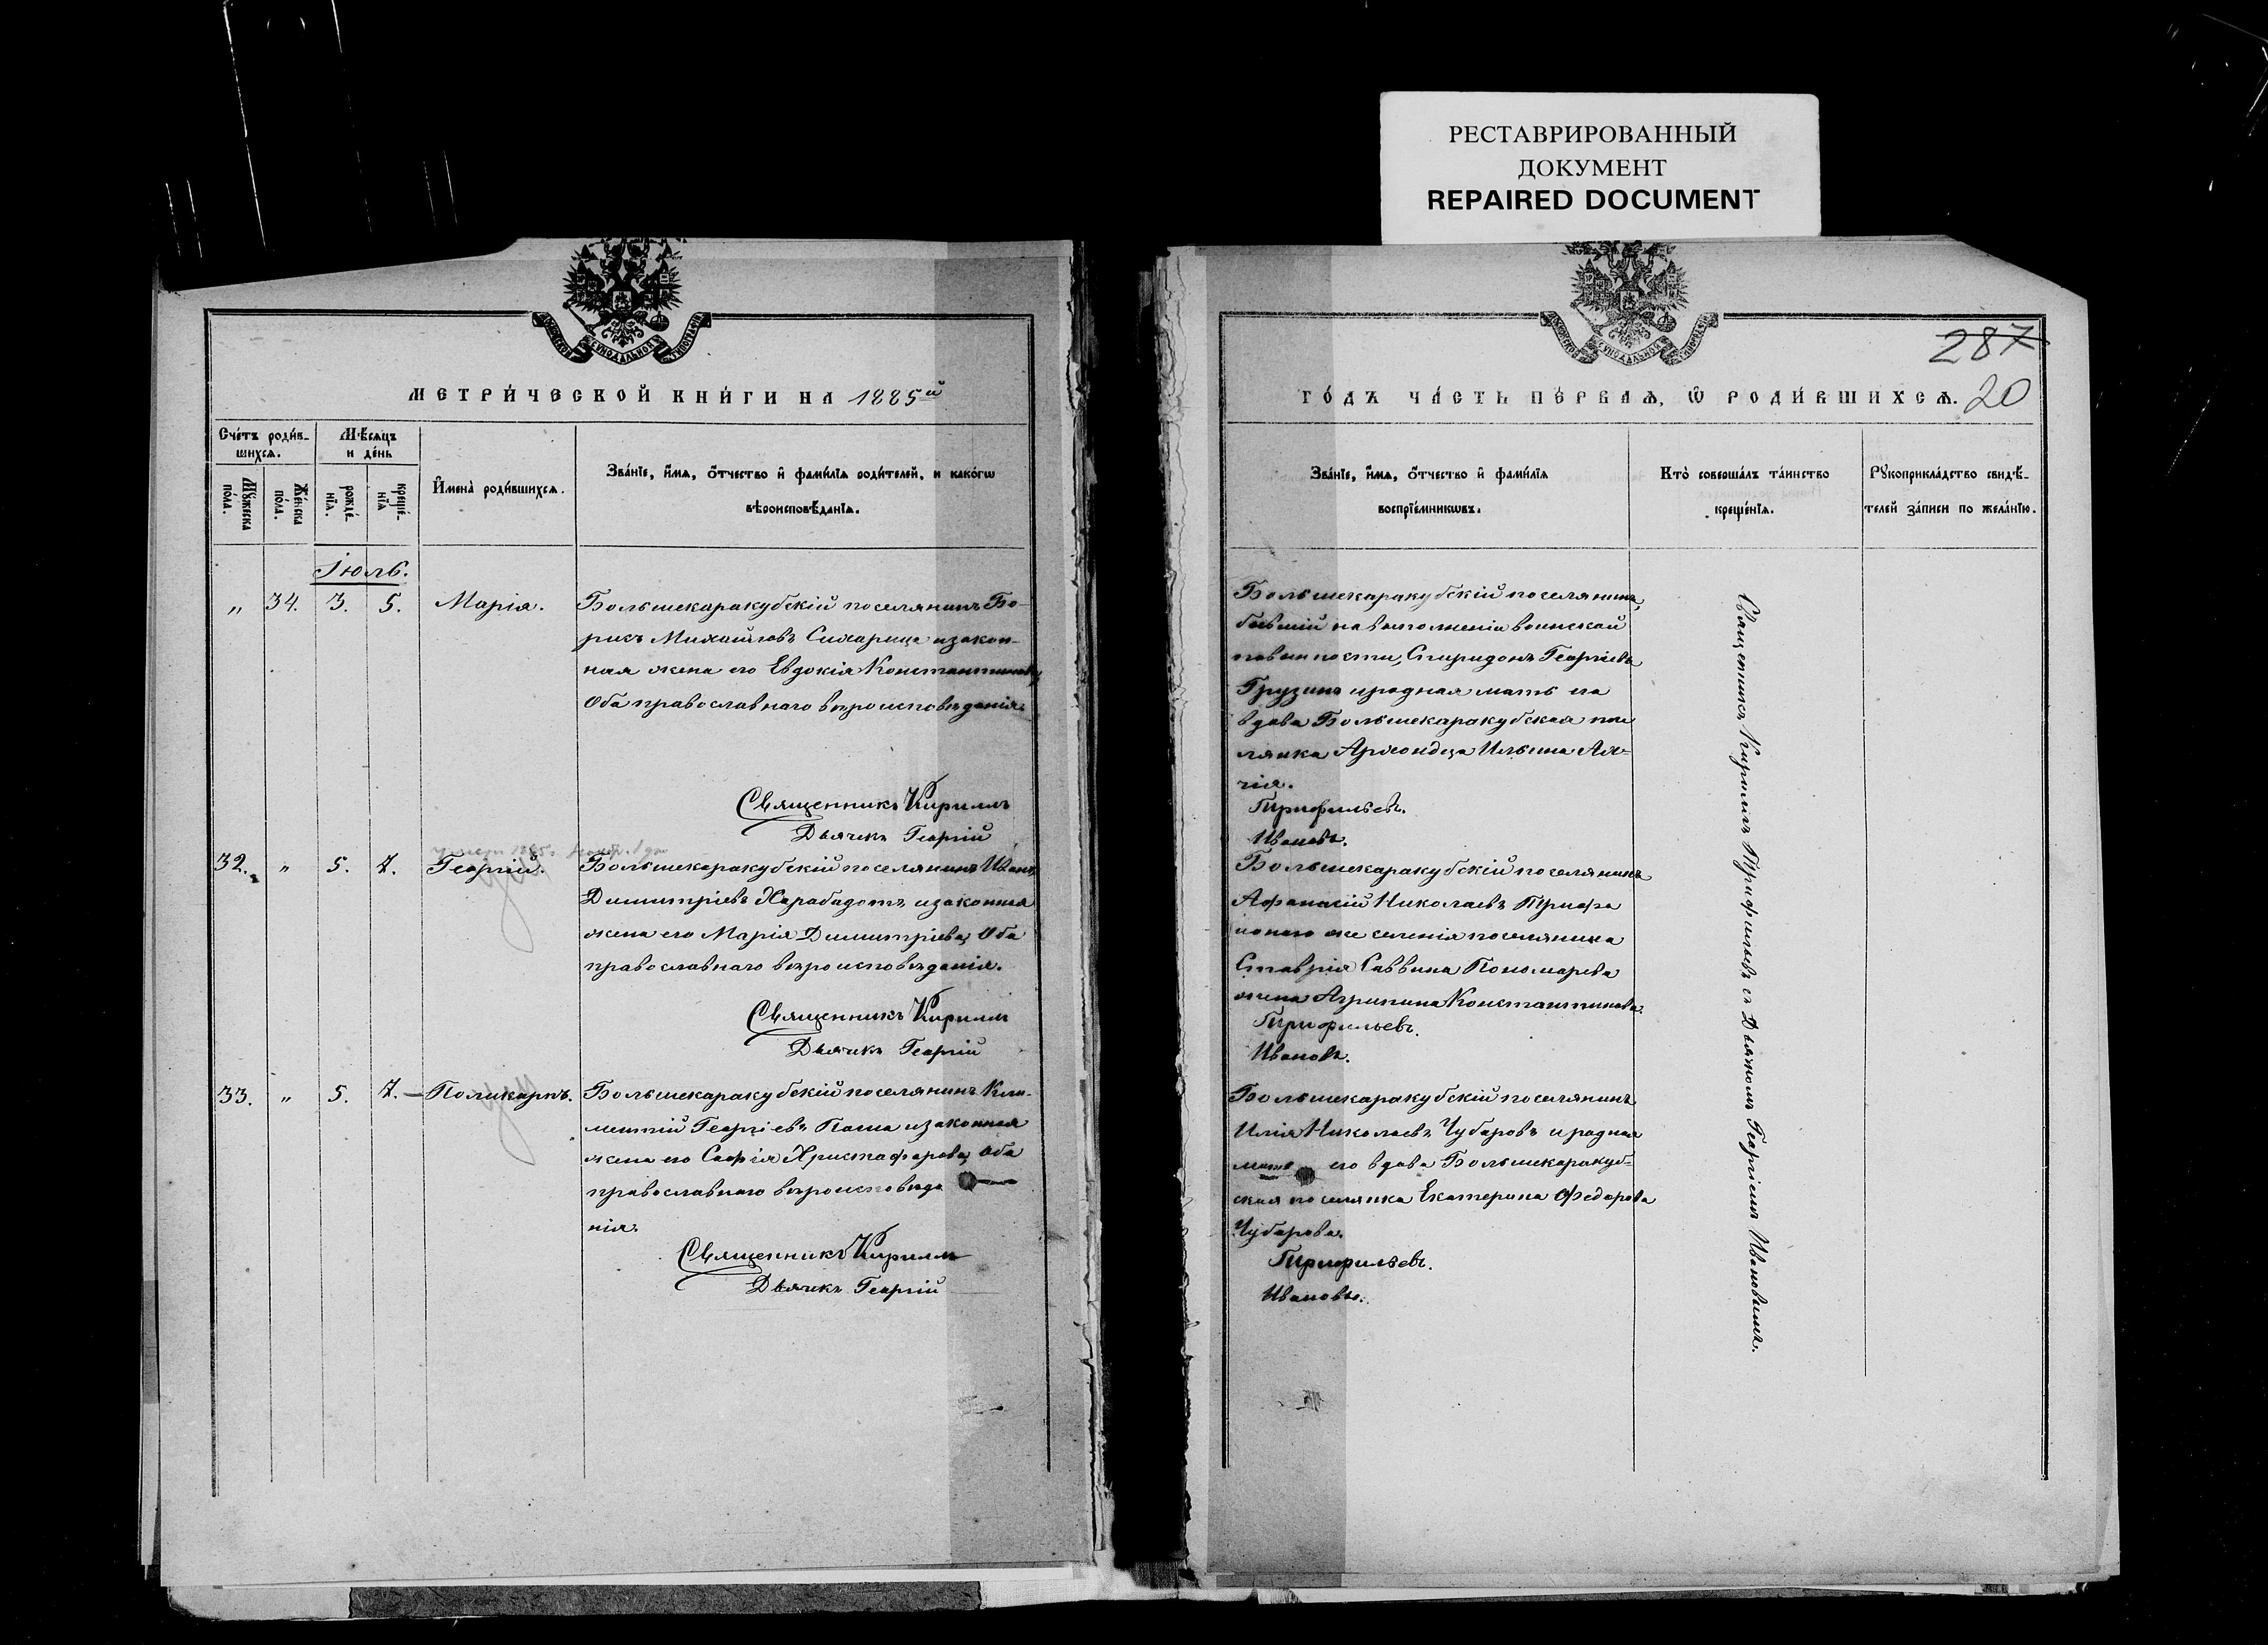 РЕСТАВРИРОВАННЫЙ
ДОКУМЕНТ
REPAIRED DOCUMENT
МЕТРИ́ЧЕСКОЙ КНИ́ГИ НА 1885й
Сче́тъ роди́в-
шихся.
Мѣ́сяцъ
и де́нь
Му́жеска
по́ла.
Же́нска
по́ла.
рожде́-
нїя.
креще́-
нїя
И҆мена̀ роди́вшихся.
Зва́нїе, и҆́мя, ѻ҆́тчество и҆ фами́лїя роди́телей, и како́гѡ
вѣроисповѣ́данїя.
Іюль.
„ 34. 3. 5. Марія.
Большекаракубскій поселянинъ Бо-
рисъ Михайловъ Сихарица и закон-
ная жена его Евдокія Константинова,
Оба православнаго вѣроисповѣданія.
Священникъ Кириллъ
Дьячекъ Георгій
32. „ 5. 7. Георгій.
Большекаракубскій поселянинъ Иванъ
Димитріевъ Харабадотъ и законная
жена его Марія Димитріева, Оба
православнаго вѣроисповѣданія.
Священникъ Кириллъ
Дьячекъ Георгій
33. „ 5. 7. — Поликарпъ.
Большекаракубскій поселянинъ Кли-
ментій Георгіевъ Паша и законная
жена его Софія Христофорова, Оба
православнаго вѣроисповѣда
нія.
Священникъ Кириллъ
Дьячекъ Георгій
287
ГО́ДЪ ЧА́СТЬ ПЕ́РВАЯ, Ѡ҆ РОДИ́ВШИХСЯ. 20
Зва́нїе, и҆́мя, ѻ҆́тчество и҆ фами́лїя
воспрїе́мникѡвъ.
Кто̀ соверша́лъ та́инство
креще́нїя.
Рꙋкоприкла́дство свидѣ́-
телей за́писи по жела́нїю.
Большекаракубскій поселянинъ,
бывшій на выполненіи воинской
повинности, Спиридонъ Георгіевъ
Грузинъ и родная мать его
вдова Большекаракубская посе
лянка Ильина
Трифильевъ.
Ивановъ.
Большекаракубскій поселянинъ
Афанасій Николаевъ Трифа
и того же селенія поселянина
Ставрія Саввина Пономарева
жена Агрипина Константинова.
Трифильевъ.
Ивановъ.
Большекаракубскій поселянинъ
Илія Николаевъ Чубаровъ и родная
мать его вдова Большекаракуб-
ская поселянка Екатерина Федорова
Чубарова.
Трифильевъ.
Ивановъ.
Священникъ Кириллъ Трифильевъ съ Дьячкомъ Георгіемъ Ивановымъ.